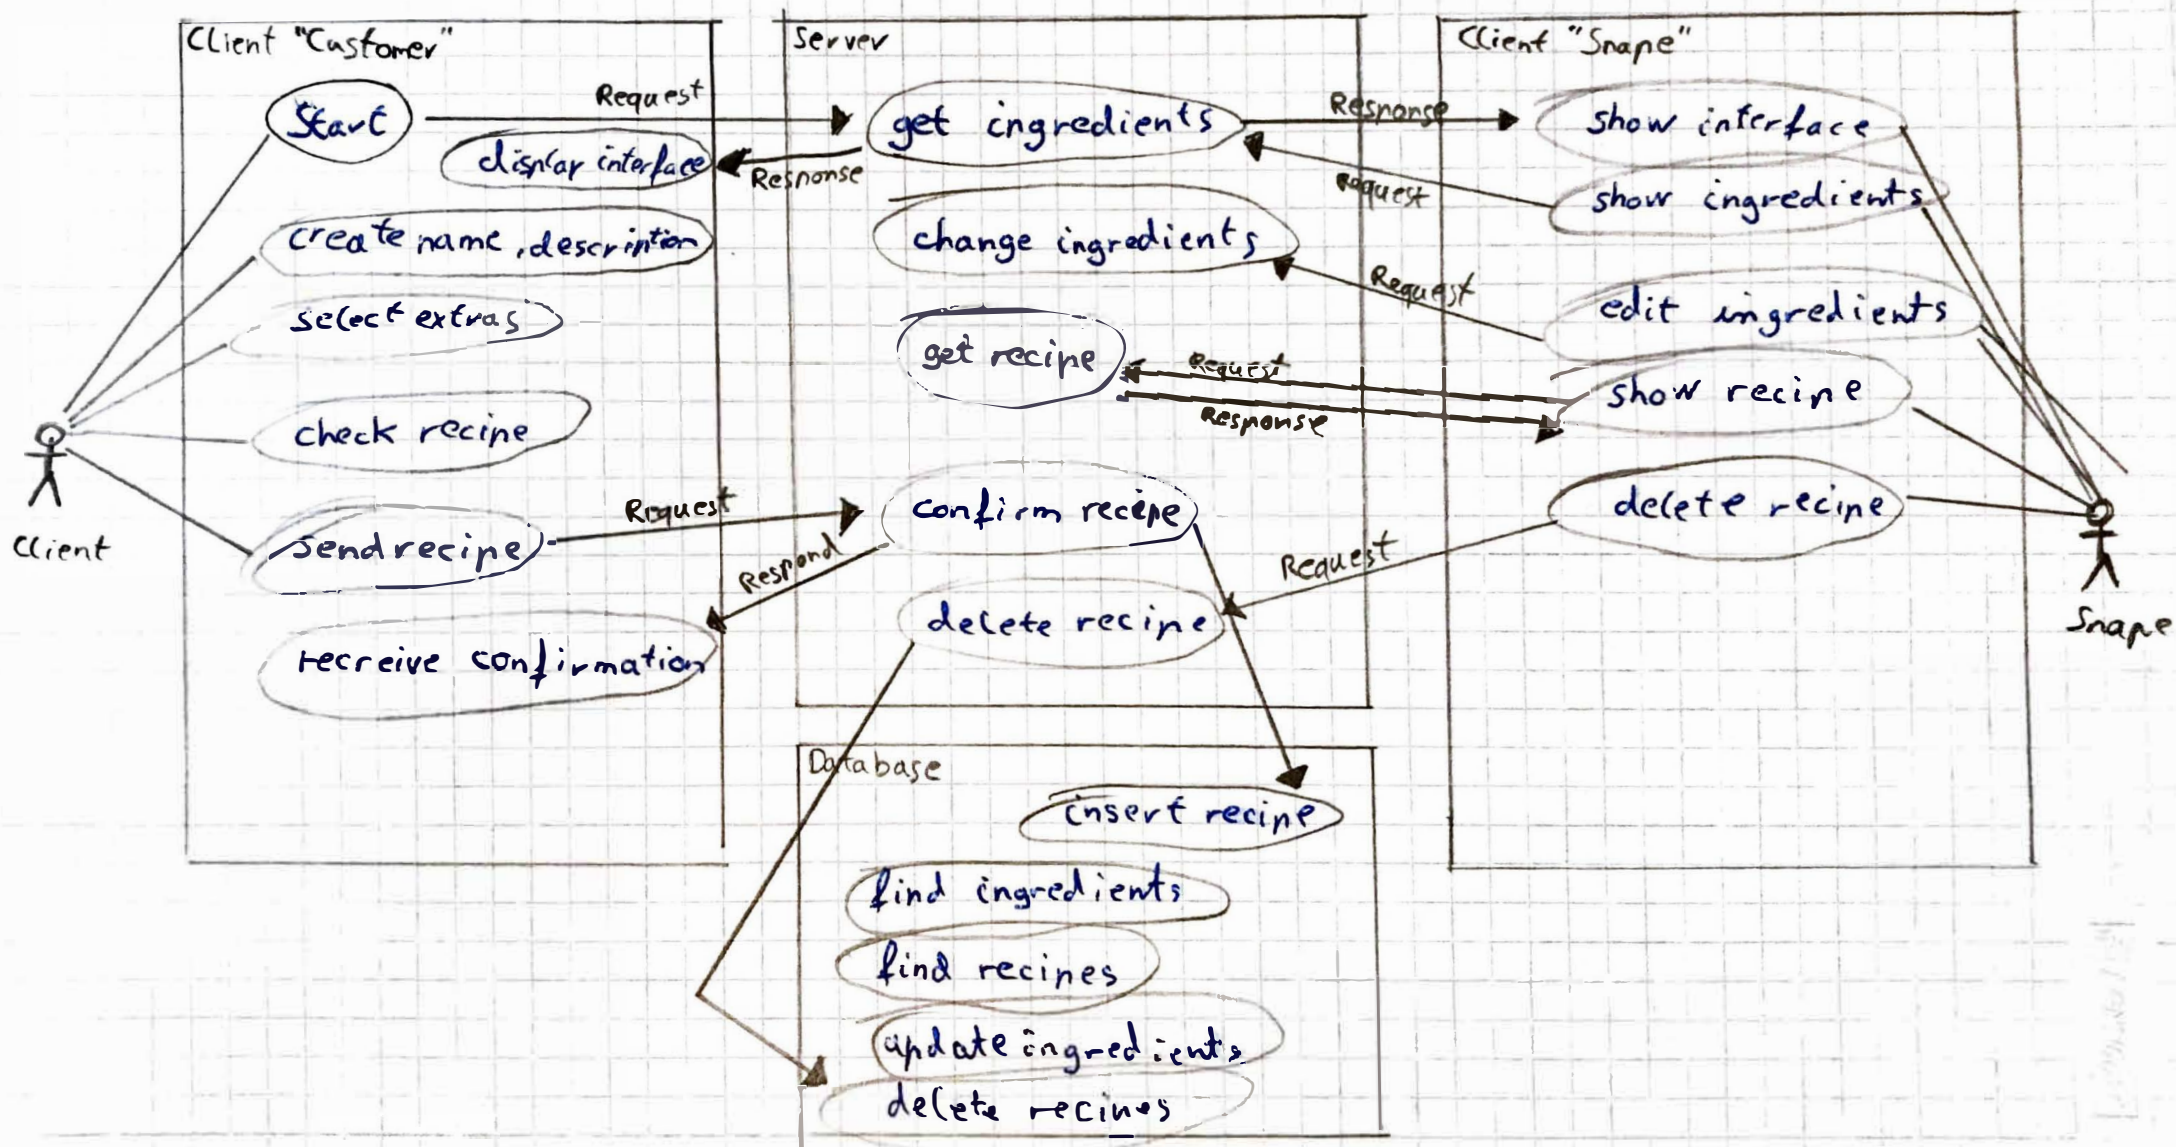 Client "Customer"
Start
Request
display interface
Response
create name, description
select extras
check recipe
send recipe
Request
Respond
recreive confirmation
Client
Server
get ingredients
change ingredients
get recipe
confirm recipe
delete recipe
Response
Request
Request
Request
Response
Request
Client "Snape"
show interface
show ingredients
edit ingredients
show recipe
delete recipe
Snape
Database
insert recipe
find ingredients
find recipes
update ingredients
delete recipes